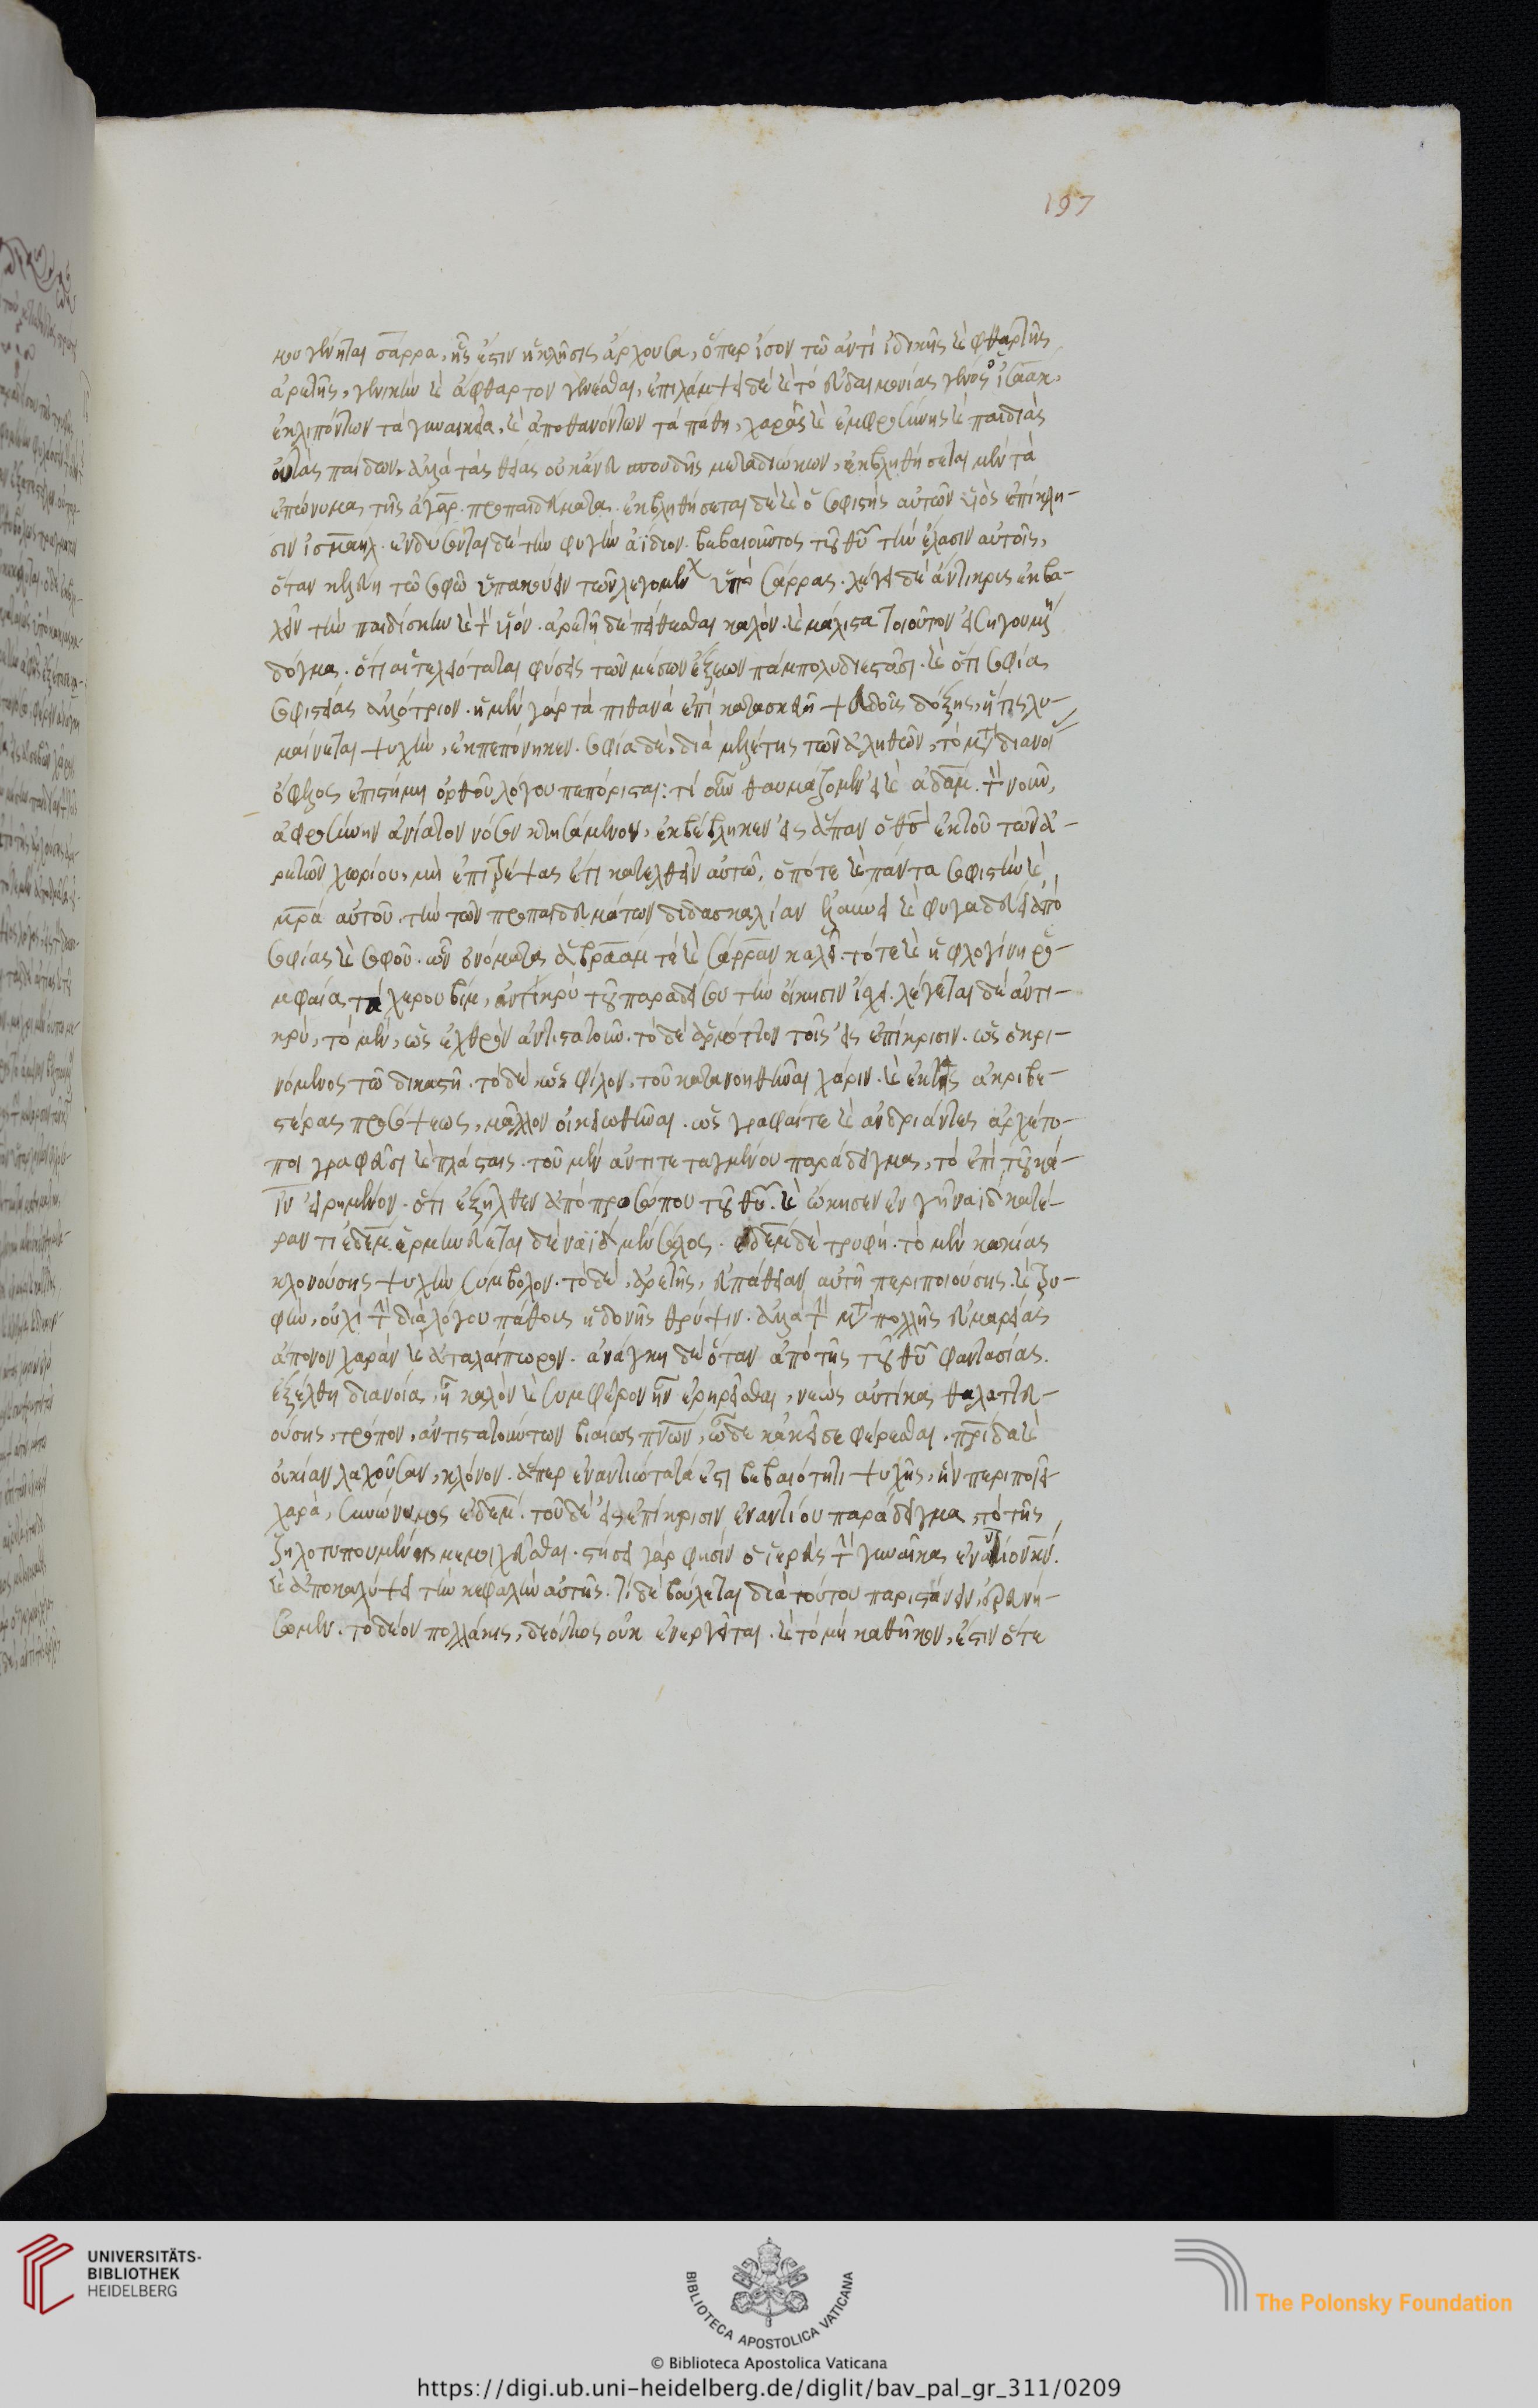 197
μου γένηται σάρρα, ἧς ἐστιν ἡ κλῆσις ἄρχουσα, ὅπερ ἴσον τῶ ἀντὶ ἰδικῆς καὶ φθαρτῆς
ἀρετῆς, γενικὴν καὶ ἄφθαρτον γενέσθαι, ἐπιλάμψει δὲ καὶ τὸ εὐδαιμονίας γένος ὁ ἰσαάκ,
ἐκλιπόντων τὰ γυναικεῖα, καὶ ἀποθανόντων τὰ πάθη, χαρᾶς καὶ ἐμφροσύνης καὶ παιδιὰς
οὐ τὰς παίδων, ἀλλὰ τὰς θείας οὐκ ἄνευ σπουδῆς μεταδιώκων, ἐκβληθήσεται μὲν τὰ
ἐπώνυμα τῆς ἄγαρ προπαιδεύματα. ἐκβληθήσεται δὲ καὶ ὁ σοφιστὴς αὐτῶν υἱὸς ἐπίκλη-
σιν ἰσμαήλ. ἐνδύσονται δὲ τὴν φυγὴν ἀΐδιον. βεβαιοῦντος τοῦ θῦ τὴν ἔλασιν αὐτοῖς,
ὅταν κελεύη τῶ σοφῶ ὑπακούειν τῶν λεγομένων ὑπὸ σάρρας. λέγει δὲ ἄντικρις ἐκβα-
λεῖν τὴν παιδίσκην καὶ τὸν υἱόν. ἀρετῆ δὲ πείθεσθαι καλόν. καὶ μάλιστα τοιοῦτον εἰσηγουμένη
δόγμα. ὅτι αἱ τελειόταται φύσεις τῶν μέσων ἕξεων πάμπολυ διεστᾶσι. καὶ ὅτι σοφία
σοφιστείας ἀλλότριον. ἡ μὲν γὰρ τὰ πιθανὰ ἐπὶ κατασκευῆ ψευδοῦς δόξης, ἥτις λυ-
μαίνεται ψυχήν, ἐκπεπόνηκεν. σοφία δὲ, διὰ μελέτης τῶν ἀληθῶν, τὸ μέγα διανοίας
ὄφελος ἐπιστήμη ὀρθοῦ λόγου πεπόρισται: τί οὖν θαυμάζομεν εἰ καὶ ἀδάμ. τὸν νοῦν,
ἀφροσύνην ἀνίατον νόσον κτησάμενον, ἐκβέβληκεν εἰς ἅπαν ὁ θσ ἐκ τοῦ τῶν ἀ-
ρετῶν χωρίου, μὴ ἐπιτρέψας ἔτι κατελθεῖν αὐτῶ, ὁπότε καὶ πάντα σοφιστὴν καὶ
μρα αὐτοῦ. τὴν τῶν προπαιδευμάτων διδασκαλίαν ἐξαύνει καὶ φυγαδεύει ἀπὸ
σοφίας καὶ σοφοῦ. ὧν ὀνόματα ἀβραάμ τε καὶ σάρραν καλεῖ. τότε καὶ ἡ φλογίνη ῥο-
μφαία τὰ χερουβίμ, ἀντικρὺ τοῦ παραδείσου τὴν οἴκησιν ἴσχει. λέγεται δὲ ἀντι-
κρύ, τὸ μὲν, ὡς ἐχθρὸν ἀντιστατοῦν. τὸ δὲ ἁρμόττον τοῖς εἰς ἐπίκρισιν. ὡς ὁ κρι-
νόμενος τῶ δικαστῆ. τὸ δὲ καὶ ὡς φίλον, τοῦ κατανοηθῆναι χάριν. καὶ ἐκ τῆς ἀκριβε-
στέρας προσόψεως, μᾶλλον οἰκειωθῆναι. ὡς γραφαί τε καὶ ἀνδριάντες ἀρχέτυ-
ποι γραφεῦσι καὶ πλάσταις. τοῦ μὲν ἀντιτεταγμένου παράδειγμα, τὸ ἐπὶ τοῦ κά-
ϊν εἰρημένον. ὅτι ἐξῆλθεν ἀπὸ προσώπου τοῦ θῦ. καὶ ὤκησεν ἐν γῆ ναῒδ κατέ-
ραντι ἐδέμ. ἑρμηνεύεται δὲ ναῒδ μὲν σάλος. ἐδὲμ δὲ τρυφή. τὸ μὲν κακίας
κλονούσης ψυχὴν σύμβολον. τὸ δὲ, ἀρετῆς, εὐπάθειαν αὐτῆ περιποιούσης. καὶ τρυ-
φὴν, οὐχὶ τὴν διὰ λόγου πάθους ἡδονῆς θρύψιν. ἀλλὰ τὴν μετὰ πολλῆς εὐμαρείας
ἄπονον χαρὰν καὶ ἀταλαίπωρον. ἀνάγκη δὲ ὅταν ἀπὸ τῆς τοῦ θῦ φαντασίας.
ἐξέλθη διανοία, ᾗ καλὸν καὶ συμφέρον ἦν ἐρηρεῖσθαι, νεὼς αὐτίκα θαλαττευ-
ούσης, τρόπον, ἀντιστατούντων βιαίως πνων, ὧδε κἀκεῖσε φέρεσθαι. πρίδα καὶ
οἰκίαν λαχοῦσαν, κλόνον. ἅπερ ἐναντιώτατά ἐστι βεβαιότητι ψυχῆς, ἣν περιποιεῖ
χαρὰ, συνώνυμος ἐδέμ. τοῦ δὲ εἰς ἐπίκρισιν ἐναντίου παράδειγμα, τὸ τῆς
ζηλοτυπουμένης μεμοιχεῦσθαι. στήσει γάρ φησιν ὁ ἱερεὺς τὴν γυναῖκα ἐναντίον κυ.
καὶ ἀποκαλύψει τὴν κεφαλὴν αὐτῆς. τί δὲ βούλεται διὰ τούτου παριστάνειν, ἐρευνή-
σωμεν. τὸ δέον πολλάκις, δεόντως οὐκ ἐνεργεῖται. καὶ τὸ μὴ καθῆκον, ἔστιν ὅτε
UNIVERSITÄTS-
BIBLIOTHEK
HEIDELBERG
BIBLIOTECA APOSTOLICA VATICANA
The Polonsky Foundation
© Biblioteca Apostolica Vaticana
https://digi.ub.uni-heidelberg.de/diglit/bav_pal_gr_311/0209